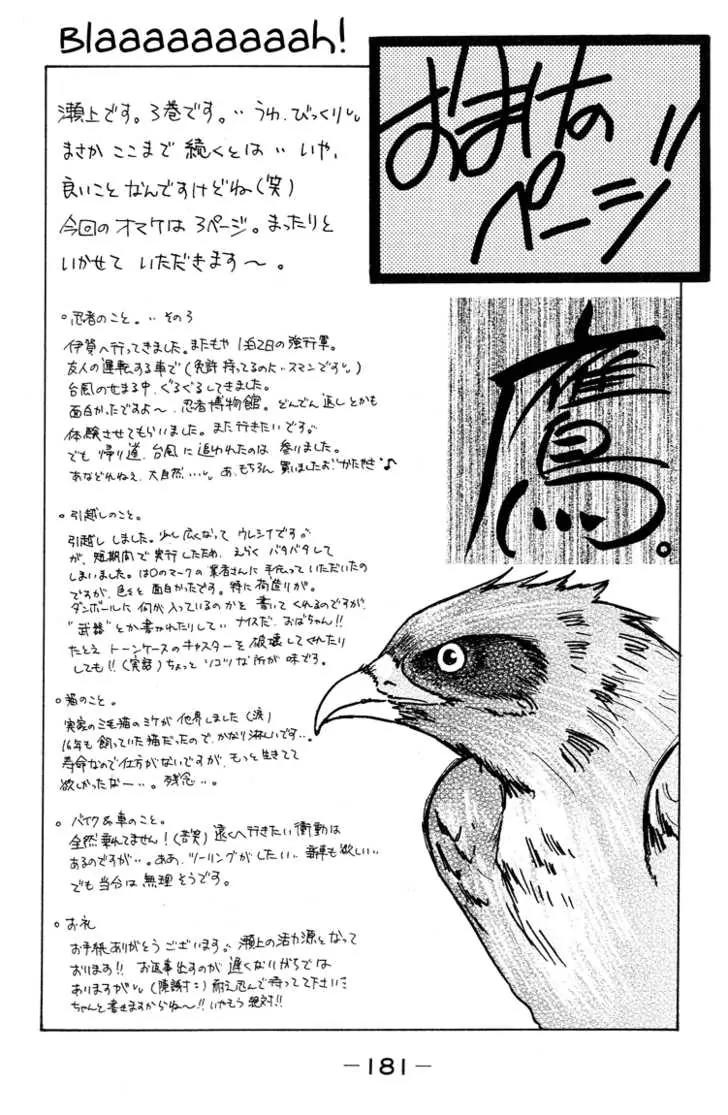 Blaaaaaaaaaah!
おまけの
ページ!!
瀬上です。3巻です。‥うわ、びっくり
まさか ここまで 続くとは‥いや、
良いこと なんですけどね(笑)
今回の オマケは 3ページ。まったりと
いかせて いただきます〜。
鷹。
○忍者のこと。‥その3
伊賀へ行ってきました。またもや 1泊2日の強行軍。
友人の運転する車で(免許持ってるのに‥スマンです)
台風の せまる中、ぐるぐるしてきました。
面白かったですよ〜、忍者博物館。どんでん返しとかも
体験させてもらいました。また行きたいです。
でも 帰り道、台風に追われたのは 参りました。
あなどれねえ、大自然…。あ、もちろん 買いましたよ"かたやき"♪
○引越しのこと。
引越し しました。少し広くなって ウレシイです。
が、短期間で 実行したため、えらく バタバタして
しまいました。はOのマークの 業者さんに 手伝って いただいたの
ですが、色々と 面白かったです。特に 荷造りが。
ダンボールに 何が入っているのかを 書いて くれるのですが、
"武器"とか書かれたりして‥ナイスだ、おばちゃん!!
たとえ トーンケースの キャスターを 破壊して くれたり
しても!!(実話)ちょっと ソコツな所が 味です。
○猫のこと。
実家の三毛猫のミケが 他界しました(涙)
16年も飼っていた猫だったので、かなり淋しいです‥。
寿命なので仕方がないですが、もっと生きてて
欲しかったなー‥。残念‥。
○バイク&車のこと。
全然 乗れてません!(苦笑)遠くへ行きたい衝動は
あるのですが‥。ああ、ツーリングがしたい‥新車も欲しい‥
でも当分は 無理そうです。
○お礼
お手紙ありがとう ございます。瀬上の活力源と なって
おります!! お返事出すのが 遅くなりがちでは
ありますが(陳謝)耐え忍んで待ってて下さい
ちゃんと書きますからね〜!!いやもう絶対!!
—181—